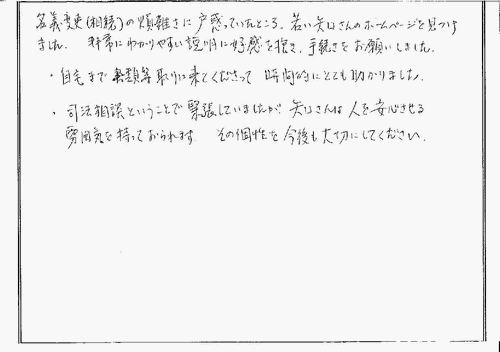 名義変更(相続)の煩雑さに戸惑っていたところ、若い矢口さんのホームページを見つけ
ました。非常にわかりやすい説明に好感を抱き、手続きをお願いしました。
・自宅まで書類等取りに来てくださって 時間的にとても助かりました。
・司法相談ということで緊張していましたが 矢口さんは人を安心させる
雰囲気を持っておられます。その個性を今後も大切にしてください。